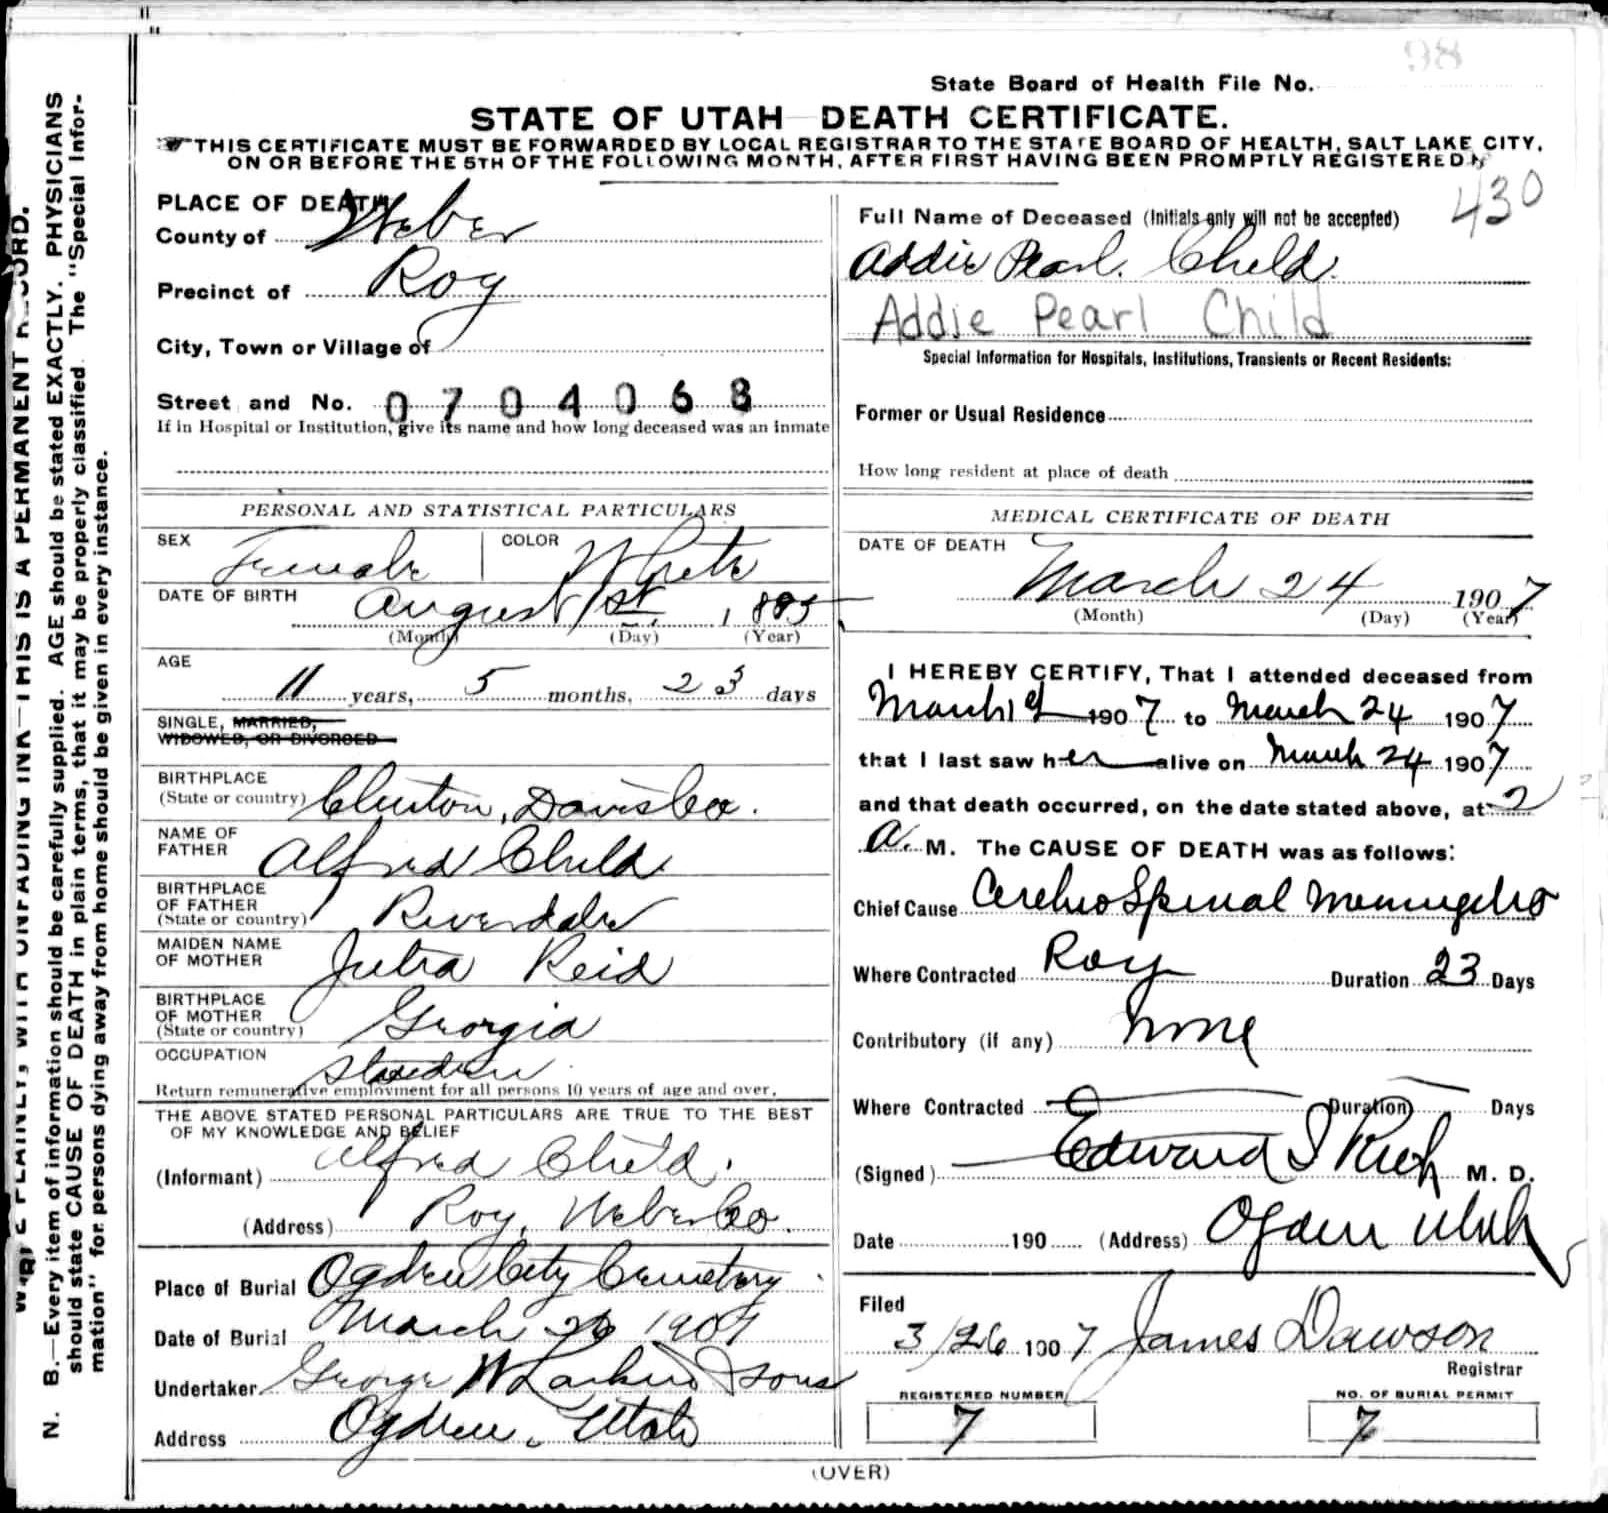 98
State Board of Health File No.
STATE OF UTAH DEATH CERTIFICATE.
THIS CERTIFICATE MUST BE FORWARDED BY LOCAL REGISTRAR TO THE STATE BOARD OF HEALTH, SALT LAKE CITY,
ON OR BEFORE THE 5TH OF THE FOLLOWING MONTH, AFTER FIRST HAVING BEEN PROMPTLY REGISTERED
430
PLACE OF DEATH
County of Weber
Precinct of Roy
City, Town or Village of
Street and No. 0704068
If in Hospital or Institution, give its name and how long deceased was an inmate
PERSONAL AND STATISTICAL PARTICULARS
SEX Female COLOR White
DATE OF BIRTH August 1st. 1895
(Month) (Day) (Year)
AGE
11 years, 5 months, 23 days
SINGLE, MARRIED,
WIDOWED, OR DIVORCED
BIRTHPLACE
(State or country) Clinton, Davis Co.
NAME OF
FATHER Alfred Child
BIRTHPLACE
OF FATHER
(State or country) Riverdale
MAIDEN NAME
OF MOTHER Reid
BIRTHPLACE
OF MOTHER
(State or country) Georgia
OCCUPATION Student
Return remunerative employment for all persons 10 years of age and over.
THE ABOVE STATED PERSONAL PARTICULARS ARE TRUE TO THE BEST
OF MY KNOWLEDGE AND BELIEF
(Informant) Alfred Child.
(Address) Roy, Weber Co.
Place of Burial Ogden City Cemetery
Date of Burial March 26 1907
Undertaker George W Larkin & Sons
Address Ogden, Utah
Full Name of Deceased (Initials only will not be accepted)
Addie Pearl. Child.
Addie Pearl Child
Special Information for Hospitals, Institutions, Transients or Recent Residents:
Former or Usual Residence
How long resident at place of death
MEDICAL CERTIFICATE OF DEATH
DATE OF DEATH
March 24 1907
(Month) (Day) (Year)
I HEREBY CERTIFY, That I attended deceased from
March 1st 1907 to March 24 1907
that I last saw her alive on March 24 1907
and that death occurred, on the date stated above, at 2
A. M. The CAUSE OF DEATH was as follows:
Chief Cause Cerebro Spinal Meningitis
Where Contracted Roy Duration 23 Days
Contributory (if any) none
Where Contracted Duration Days
(Signed) Edward I Rich M. D.
Date 190 (Address) Ogden Utah
Filed
3/26 1907 James Dawson
Registrar
REGISTERED NUMBER
7
NO. OF BURIAL PERMIT
7
(OVER)
WRITE PLAINLY, WITH UNFADING INK—THIS IS A PERMANENT RECORD.
N. B.—Every item of information should be carefully supplied. AGE should be stated EXACTLY. PHYSICIANS
should state CAUSE OF DEATH in plain terms, that it may be properly classified. The "Special Infor-
mation" for persons dying away from home should be given in every instance.